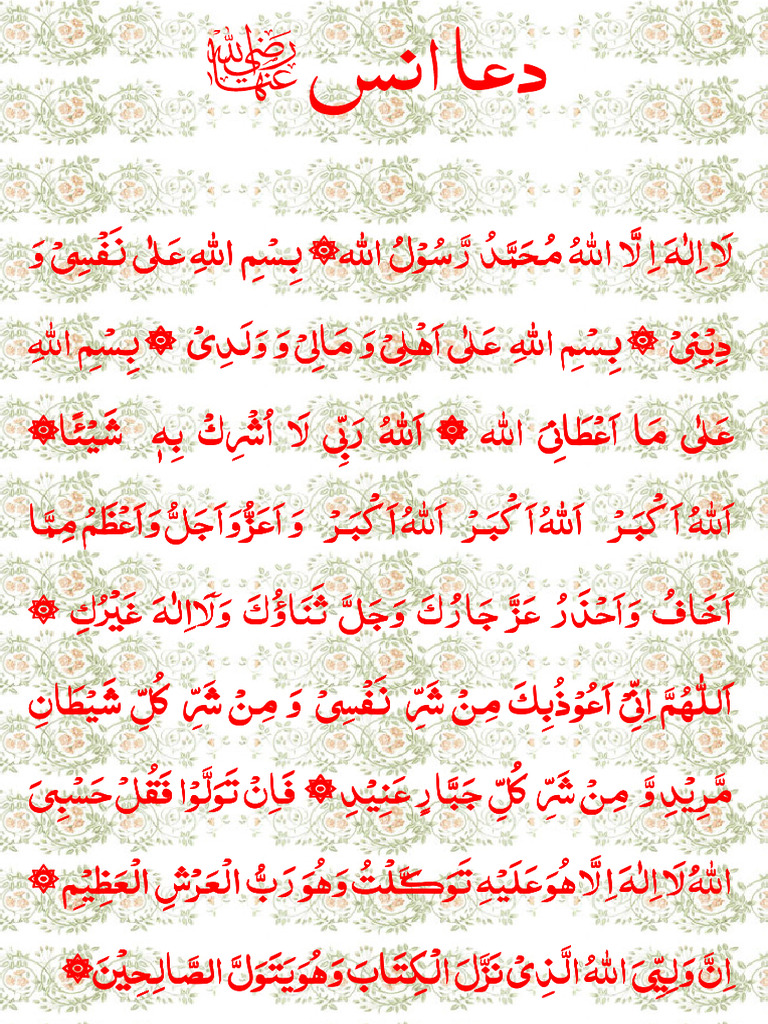 دعا انس رضی اللہ عنہا
لَا اِلٰهَ اِلَّا اللهُ مُحَمَّدُ رَّسُوْلُ الله۞ بِسْمِ اللهِ عَلٰى نَفْسِىْ وَ
دِيْنِىْ ۞ بِسْمِ اللهِ عَلٰى اَهْلِىْ وَ مَالِىْ وَ وَلَدِىْ ۞ بِسْمِ اللهِ
عَلٰى مَا اَعْطَانِىَ الله ۞ اَللهُ رَبِّى لَا اُشْرِكْ بِهٖ شَيْئًا۞
اَللهُ اَكْبَرْ اَللهُ اَكْبَرْ اَللهُ اَكْبَرْ وَ اَعَزُّ وَ اَجَلُّ وَ اَعْظَمُ مِمَّا
اَخَافُ وَ اَحْذَرُ عَزَّ جَارُكَ وَ جَلَّ ثَنَاؤُكَ وَ لَآ اِلٰهَ غَيْرُكِ ۞
اَللّٰهُمَّ اِنِّىْ اَعُوْذُ بِكَ مِنْ شَرِّ نَفْسِىْ وَ مِنْ شَرِّ كُلِّ شَيْطَانِ
مَّرِيْدِ وَّ مِنْ شَرِّ كُلِّ جَبَّارٍ عَنِيْدِ۞ فَاِنْ تَوَلَّوْا فَقُلْ حَسْبِىَ
اللهُ لَا اِلٰهَ اِلَّا هُوَ عَلَيْهِ تَوَكَّلْتُ وَهُوَ رَبُّ الْعَرْشِ الْعَظِيْمِ۞
اِنَّ وَلِيِّىَ اللهُ الَّذِىْ نَزَّلَ الْكِتَابَ وَهُوَ يَتَوَلَّ الصَّالِحِيْنَ۞